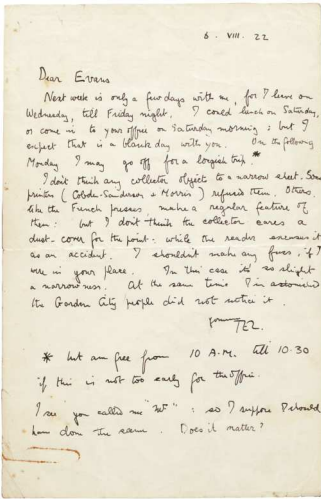 6. VIII. 22
Dear Evans
Next week is only a few days with me, for I leave on
Wednesday, till Friday night. I could lunch on Saturday,
or come in to your office on Saturday morning: but I
expect that is a blank day with you. On the following
Monday I may go off for a longish trip. *
I don't think any collector objects to a narrow sheet. Some
printers (Cobden-Sanderson & Morris) refused them. Others,
like the French presses make a regular feature of
them: but I don't think the collector cares a
dust-cover for the point: while the reader excuses it
as an accident. I shouldn't make any fuss, if I
were in your place. In this case it's so slight
a narrowness. At the same time I'm astonished
the Garden City people did not notice it.
Yours
TEL.
* but am free from 10 A.M. till 10.30
if this is not too early for the office.
I see you called me "": so I suppose I should
have done the same. Does it matter?